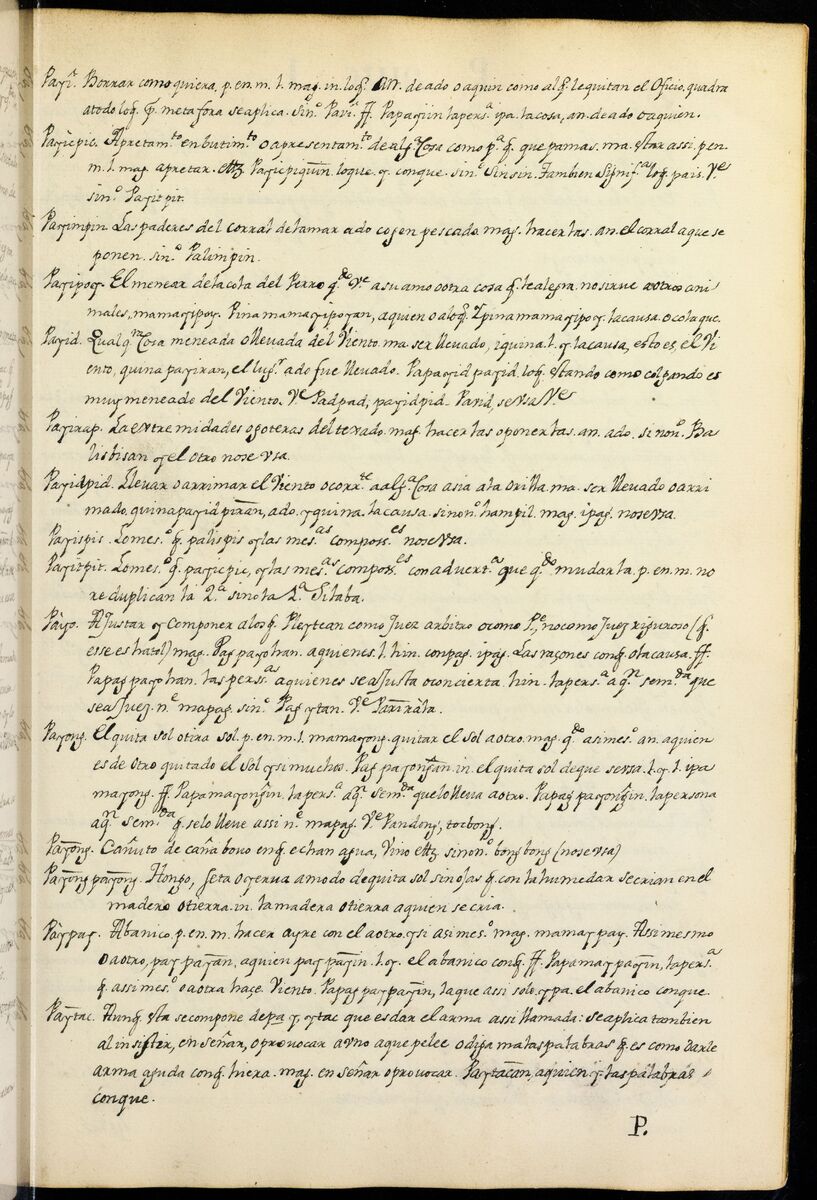 Payî. Borrar como quiera, p. en. m. l. mag. in. loq̃. an. de ado o aquin como al q̃. le quitan el Oficio. quadra
atodo loq̃. pʳ. metafora se aplica. Sinᵒ. Pavî. ff. Papayiin lapersᵃ. ipa. la cosa, an. de ado o aquien.
Payìpic. Apretamᵗᵒ. en butimᵗᵒ. o apresentamᵗᵒ. de algᵃ. Cosa como pᵃ. q̃. que pamas. ma. star assi. p. en.
m. l. mag. apretar. ettz. Payipiquin. lo que. y. conque. sinᵒ. Sinsin. Tambien Signifᵃ. loq̃. pais. Vᵉˢ
sinᵒ. Payitpit.
Payimpin. Las paderes del corral de la mar ado cojen pescado. mag. hacerlas. an. el corral a que se
ponen. sinᵒ. Palimpin.
Payipoy. El menear dela cola del Perro qᵈᵒ. vᵉ. a su amo o otra cosa q̃. le alegra. no sirve a otros ani
males, mamayipoy. Pinamamayipoyan, a quien o a loq̃. Ypinamamayipoy. la causa. o cola que.
Payid. Qualqʳ. Cosa meneada o llevada del Viento. ma. ser llevado, iquina. l. y. la causa, esto es, el Vi
ento, quina payiran, el lugʳ. ado fue llevado. Papayid payid, loq̃. stando como colgando es
muy meneado del Viento. Vᵉ. Padpad, payidpid. Parid, se usa Vᵉ
Payirap. La extremidades o goteras del texado. mag. hacerlas o ponerlas. an. ado. sinonᵒ. Ba
lisbisan y el otro no se usa.
Payidpid. Llevar o arrimar el Viento o corrᵗᵉ. a algᵃ. Cosa asia a la Orilla. ma. ser llevado o arri
mado, quinapayidpiran, ado. y quina. la causa. sinonᵒ. hampil. mag. ipag. no se usa.
Payispis. Lo mesᵒ. q̃. palispis y las mesᵃˢ. composs.ᵉˢ no se usa.
Payitpit. Lo mesᵒ. q̃. payicpic, y las mesᵃˢ. composs.ᵉˢ con advertᵃ. que qᵈᵒ. mudar la. p. en. m. no
reduplican la 2.ᵃ sino la 1.ᵃ Silaba.
Pàyo. Ajustar y Componer alos q̃. Pleytean como Juez arbitro o como Pᵉ. no como Juez riguroso (q̃.
esse es hatol) mag. Pag payohan. aquienes. l. hin. conpag. ipag. Las raçones conq̃. o la causa. ff.
Papag payohan. las persᵃˢ. a quienes se ajusta o concierta. hin. la persᵃ. a qⁿ. semᵈᵃ que
sea Juez. nᵉ. mapag. sinᵒ. Pagytan. Vᵉ. Panirâla.
Payong. El quita sol o tira sol. p. en. m. l. mamayong. quitar el sol a otro. mag. qᵈᵒ asi mesᵒ. an. a quien
es de otro quitado el sol y si muchos. Pag payongan. in. el quita sol de que se usa. l. y. l. ipa
mayong. ff. Papamayongin. la persᵃ. a qⁿ. semᵈᵃ que lo lleva a otro. Papag payongin. la persona
a qⁿ. semᵈᵃ. q̃. se lo lleve assi nᵉ. mapag. Vᵉ. Pandong, tocbong.
Payong. Cañuto de caña bovo en q̃. echan agua, Vino ettz. sinonᵒ. bongbong (no se usa)
Payong payong. Hongo, seta o yerva a modo de quita sol sin ojas q̃. con la humedar se crian en el
madero o tierra. in. la madera o tierra a quien se cria.
Pàypay. Abanico. p. en. m. hacer ayre con el a otro. y si asi mesᵒ. mag. mamaypay. Assi mesmo
o a otro, paypayan, aquien paypayin. l. y. el abanico conq̃. ff. Papamaypayin, la persᵃ.
q̃. assi mesᵒ. o a otra haçe. Viento. Papag paypayin, la que assi solo. y pa. el abanico conque.
Paytac. Aunq̃. sta se compone de pa y, ytac que es dar el arma assi llamada: se aplica tambien
al insister, en señar, o provocar a uno a que pelee o diga malas palabras q̃. es como darle
arma aguda conq̃. hiera. mag. en señar o provocar. Paytacan, aquien y las palabras
conque.
P.